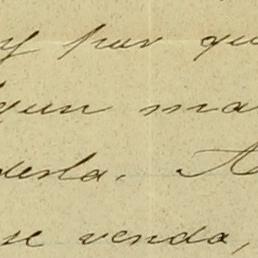 y por qu
gun ma
derla. A
se venda,